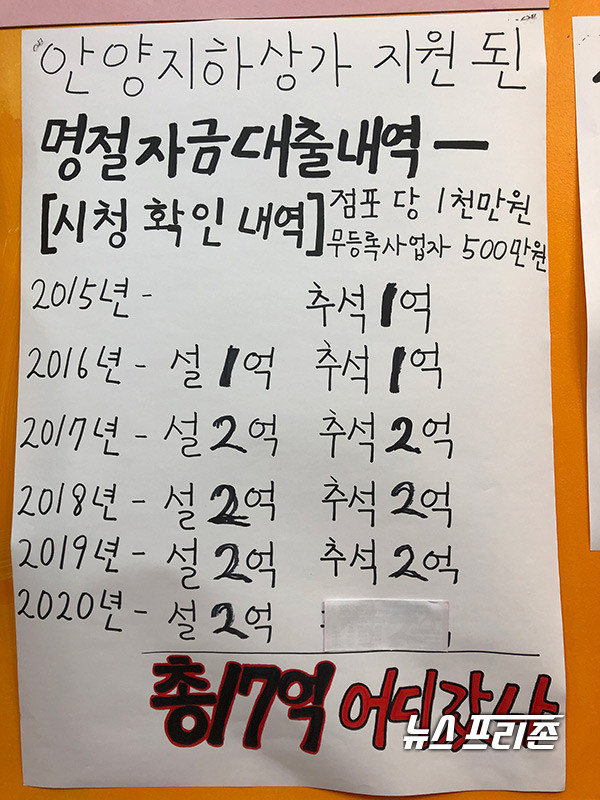 안양지하상가 지원 된
명절자금대출내역 —
[시청 확인 내역] 점포 당 1천만원
무등록사업자 500만원
2015년 - 추석 1억
2016년 - 설 1억 추석 1억
2017년 - 설 2억 추석 2억
2018년 - 설 2억 추석 2억
2019년 - 설 2억 추석 2억
2020년 - 설 2억
총17억 어디갔나
뉴스프리존